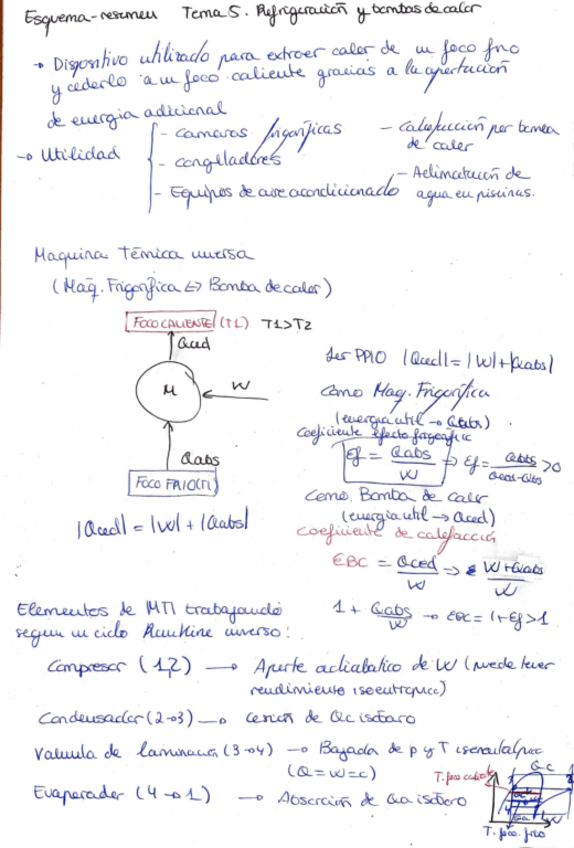 Esquema-resumen Tema 5. Refrigeración y bombas de calor
→ Dispositivo utilizado para extraer calor de un foco frío
y cederlo a un foco caliente gracias a la aportación
de energía adicional
→ Utilidad
- cámaras frigoríficas
- congeladores
- Equipos de aire acondicionado
- calefacción por bomba
de calor
- Aclimatación de
agua en piscinas.
Maquina Térmica inversa
(Maq. Frigorífica ↔ Bomba de calor)
FOCO CALIENTE (T1) T1>T2
Qced
M
W
Qabs
FOCO FRIO
|Qced| = |W| + |Qabs|
1er PPIO |Qced| = |W| + |Qabs|
como Maq. Frigorífica
(energía util → Qabs)
coeficiente efecto frigorífico
Ef = Qabs/W → Ef = Qabs/Qced-Qabs >0
Como Bomba de Calor
(energía util → Qced)
coeficiente de calefacción
EBC = Qced/W → W+Qabs/W
1 + Qabs/W → EBC = 1+Ef >1
Elementos de MTI trabajando
segun un ciclo Rankine inverso:
Compresor (1,2) → Aporte adiabatico de W (puede tener
rendimiento isoentropico)
Condensador (2→3) → cesión de Qc isobaro
Valvula de laminación (3→4) → Bajada de p y T isoentalpica
(Q=W=c)
Evaporador (4→1) → Absorción de Qa isobaro
Qc
T. foco caliente
W
Qa
T. foco frio